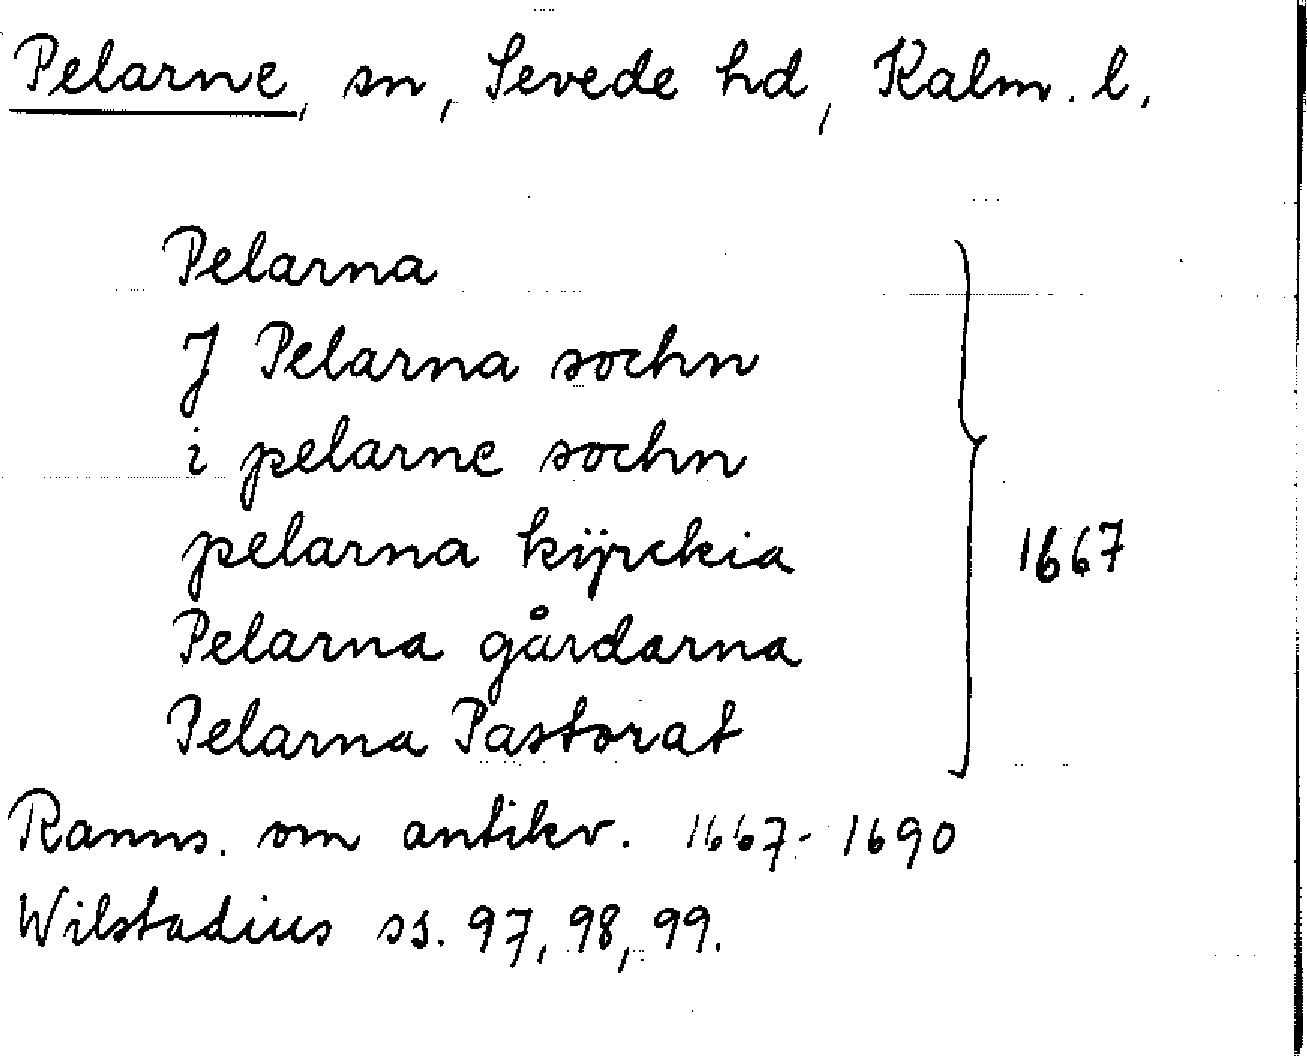 Pelarne, sn, Sevede hd, Kalm. l.
Pelarna
J Pelarna sochn
i pelarne sochn
pelarna kÿrckia
1667
Pelarna gårdarna
Pelarna Pastorat
Ranns. om antikv. 1667-1690
Wilstadius ss. 97, 98, 99.